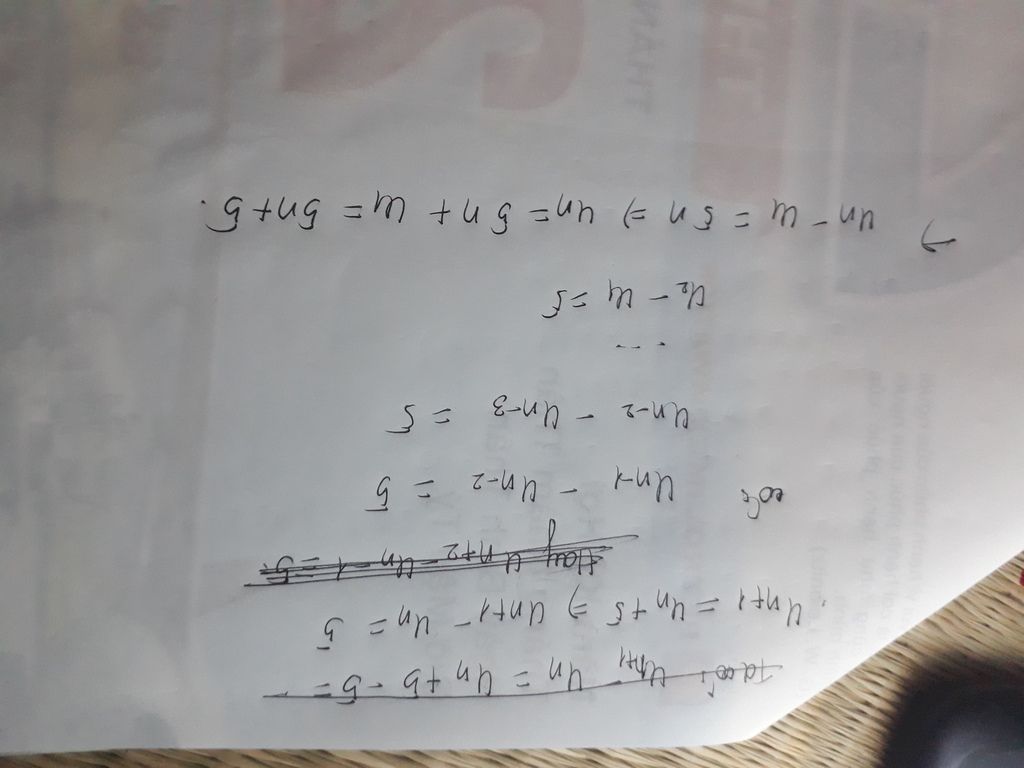 Ta có: Un+1 - Un = Un + 5 - 5 =
Un+1 = Un + 5 => Un+1 - Un = 5
Hay Un+2 - Un-1 = 5
có: Un-1 - Un-2 = 5
Un-2 - Un-3 = 5
...
U2 - U1 = 5
→ Un - U1 = 5n => Un = 5n + U1 = 5n+5.